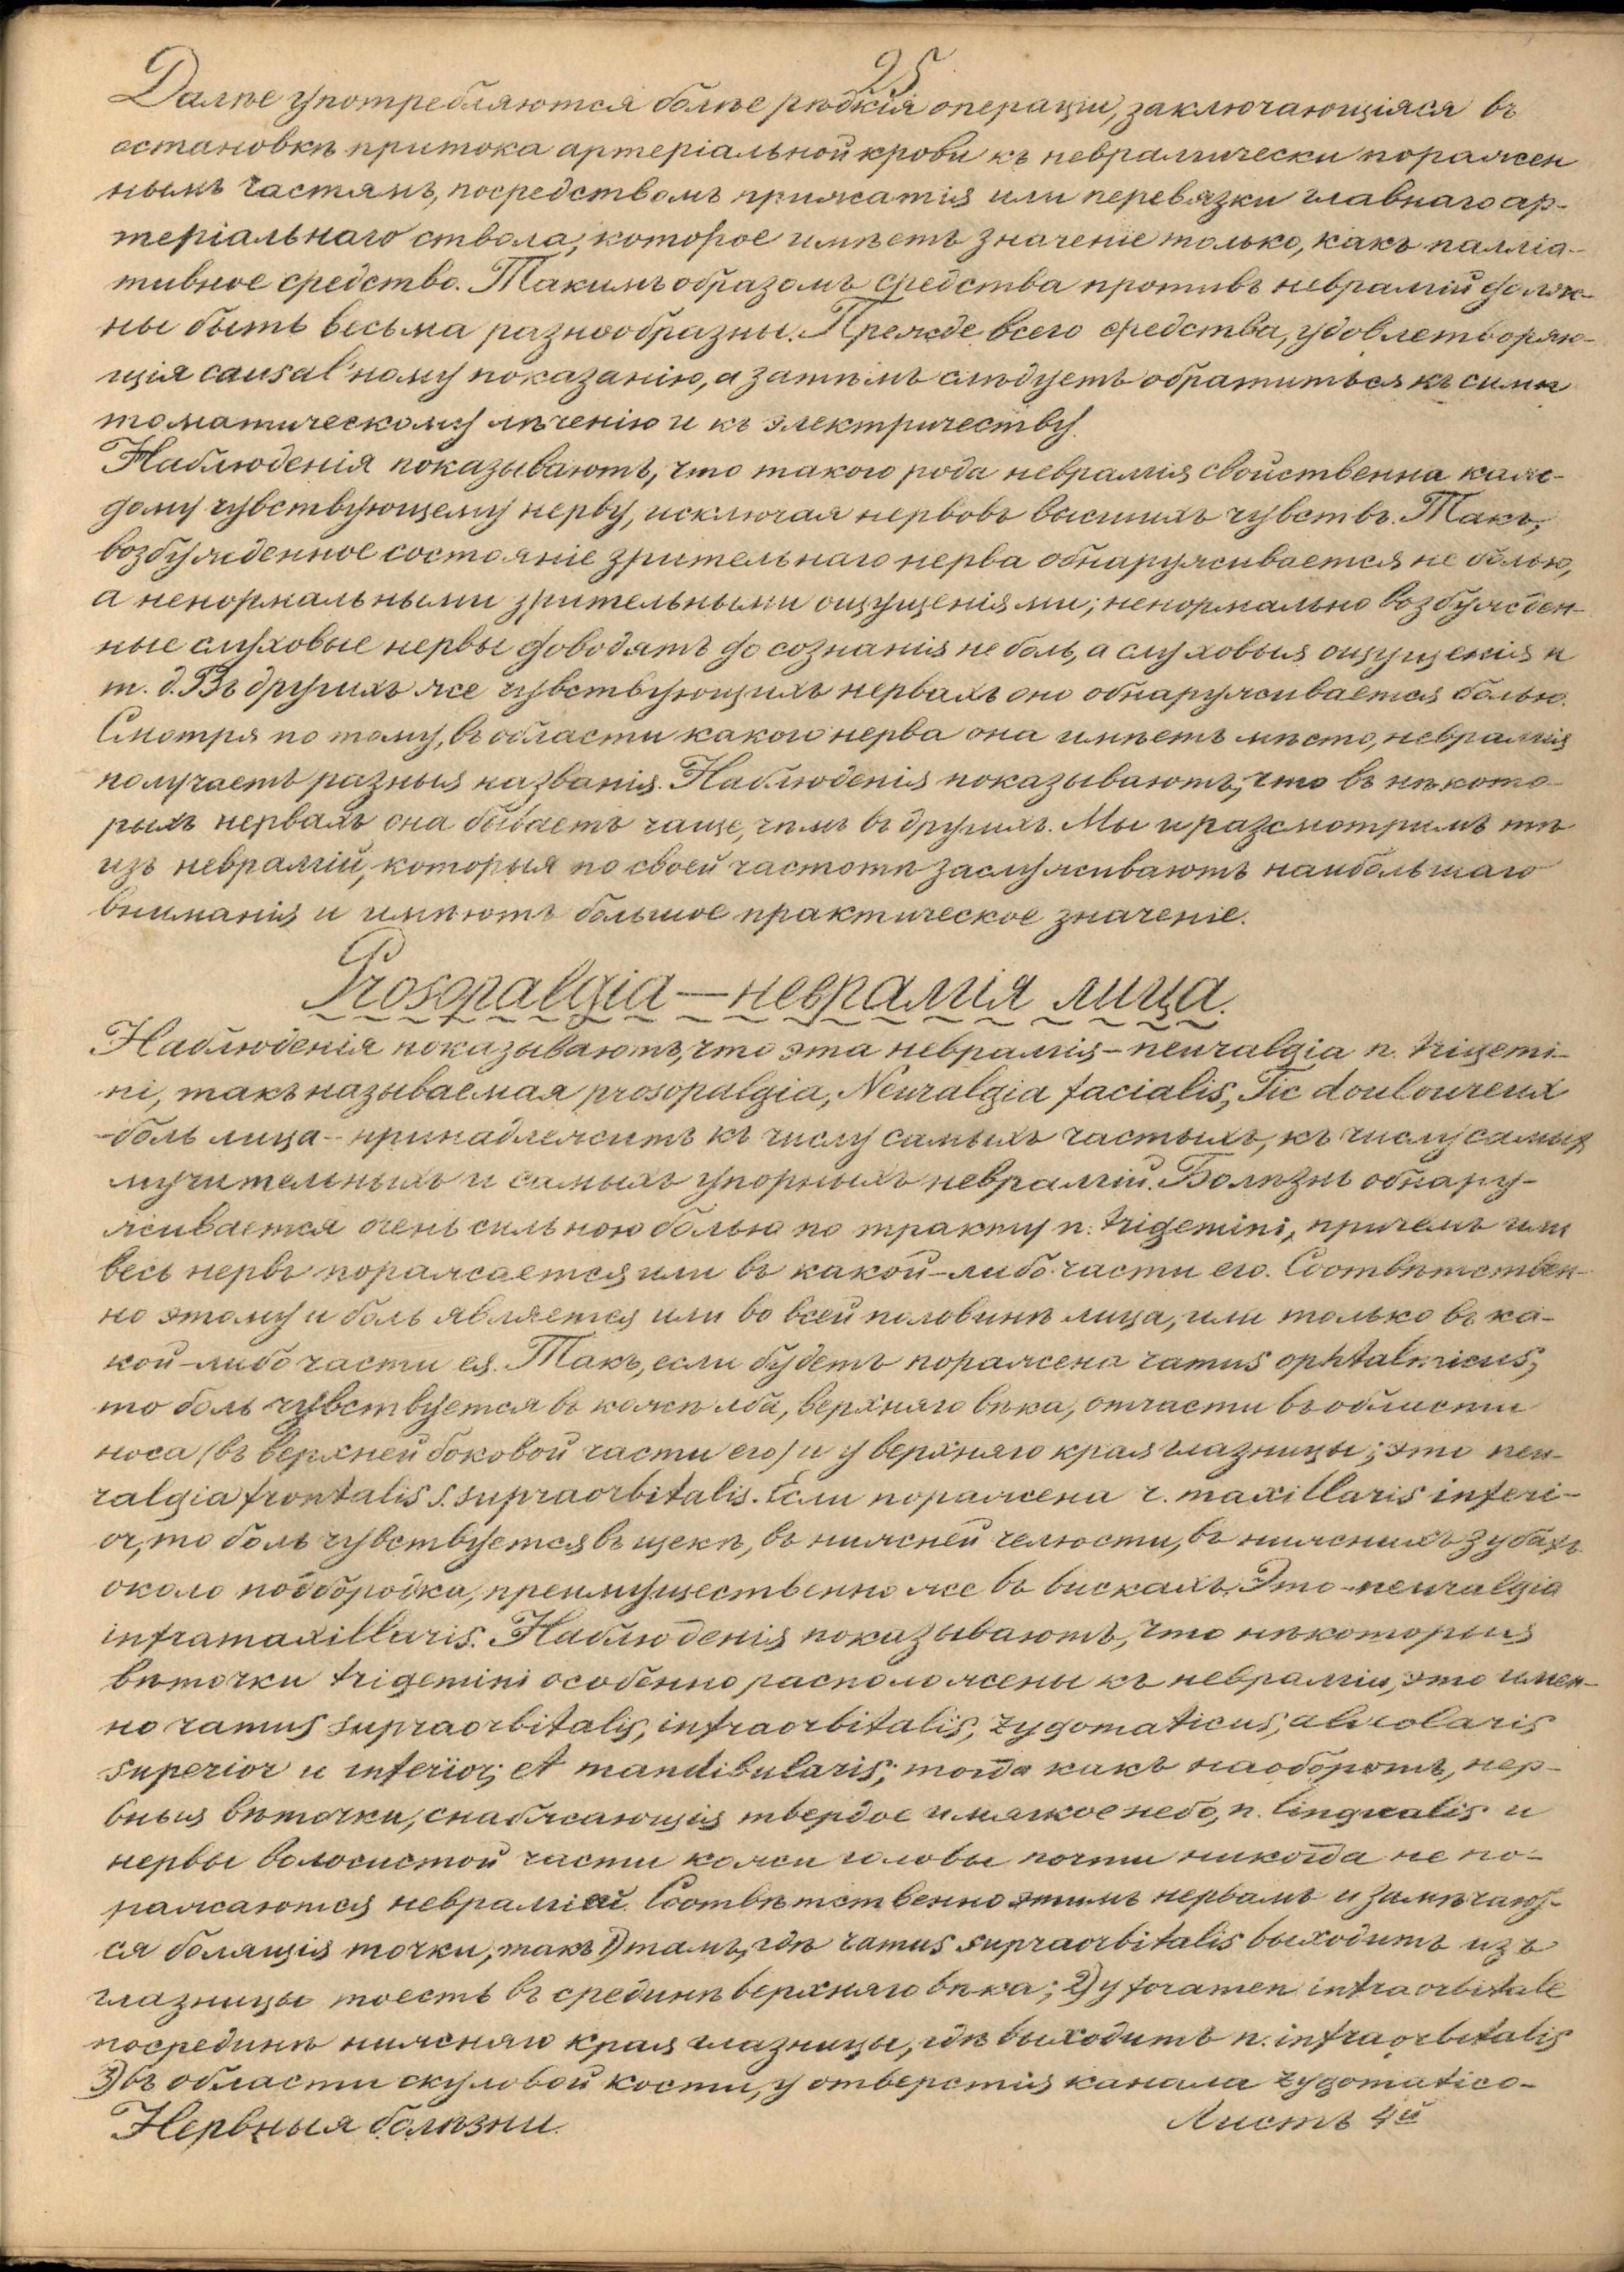 25
Далѣе употребляются болѣе рѣдкія операціи, заключающіяся въ
остановкѣ притока артеріальной крови къ невралгически поражен
нымъ частямъ, посредствомъ прижатія или перевязки главнаго ар-
теріальнаго ствола, которое имѣетъ значеніе только, какъ палліа-
тивное средство. Такимъ образомъ средства противъ невралгій долж-
ны быть весьма разнообразны. Прежде всего средства, удовлетворяю-
щія causal'ному показанію, а затѣмъ слѣдуетъ обратиться къ симп
томатическому лѣченію и къ электричеству.
Наблюденія показываютъ, что такого рода невралгія свойственна каж-
дому чувствующему нерву, исключая нервовъ высшихъ чувствъ. Такъ,
возбужденное состояніе зрительнаго нерва обнаруживается не болью,
а ненормальными зрительными ощущеніями; ненормально возбужден-
ные слуховые нервы доводятъ до сознанія не боль, а слуховыя ощущенія и
т. д. Въ другихъ же чувствующихъ нервахъ оно обнаруживается болью.
Смотря по тому, въ области какого нерва она имѣетъ мѣсто, невралгія
получаетъ разныя названія. Наблюденія показываютъ, что въ нѣкото-
рыхъ нервахъ она бываетъ чаще, чѣмъ въ другихъ. Мы и разсмотримъ тѣ
изъ невралгій, которыя по своей частотѣ заслуживаютъ наибольшаго
вниманія и имѣютъ большое практическое значеніе.
Prosopalgia — невралгія лица.
Наблюденія показываютъ, что эта невралгія - neuralgia n. trigemi-
ni, такъ называемая prosopalgia, Neuralgia facialis, Tic douloureux
- боль лица - принадлежитъ къ числу самыхъ частыхъ, къ числу самых
мучительныхъ и самыхъ упорныхъ невралгій. Болѣзнь обнару-
живается очень сильною болью по тракту n. trigemini, причемъ или
весь нервъ поражается или въ какой-либо части его. Соотвѣтствен-
но этому и боль является или во всей половинѣ лица, или только въ ка-
кой-либо части ея. Такъ, если будетъ поражена ramus ophtalmicus,
то боль чувствуется въ кожѣ лба, верхняго вѣка, отчасти въ области
носа (въ верхней боковой части его) и у верхняго края глазницы; это neu-
ralgia frontalis s. supraorbitalis. Если поражена r. maxillaris inferi-
or, то боль чувствуется въ щекѣ, въ нижней челюсти, въ нижнихъ зубахъ
около подбородка, преимущественно же въ вискахъ. Это - neuralgia
inframaxillaris. Наблюденія показываютъ, что нѣкоторыя
вѣточки trigemini особенно расположены къ невралгіи, это имен-
но ramus supraorbitalis, infraorbitalis, zygomaticus, alveolaris
superior и inferior, et mandibularis; тогда какъ наоборотъ, нер-
вныя вѣточки, снабжающія твердое и мягкое небо, n. lingualis и
нервы волосистой части кожи головы почти никогда не по-
ражаются невралгіей. Соотвѣтственно этимъ нервамъ и замѣчают-
ся болящія точки, такъ 1) тамъ, гдѣ ramus supraorbitalis выходитъ изъ
глазницы тоесть въ срединѣ верхняго вѣка; 2) у foramen infraorbitale
посрединѣ нижняго края глазницы, гдѣ выходитъ n. infraorbitalis
3) въ области скуловой кости, у отверстія канала zygomatico-
Нервныя болѣзни. Листъ 4й